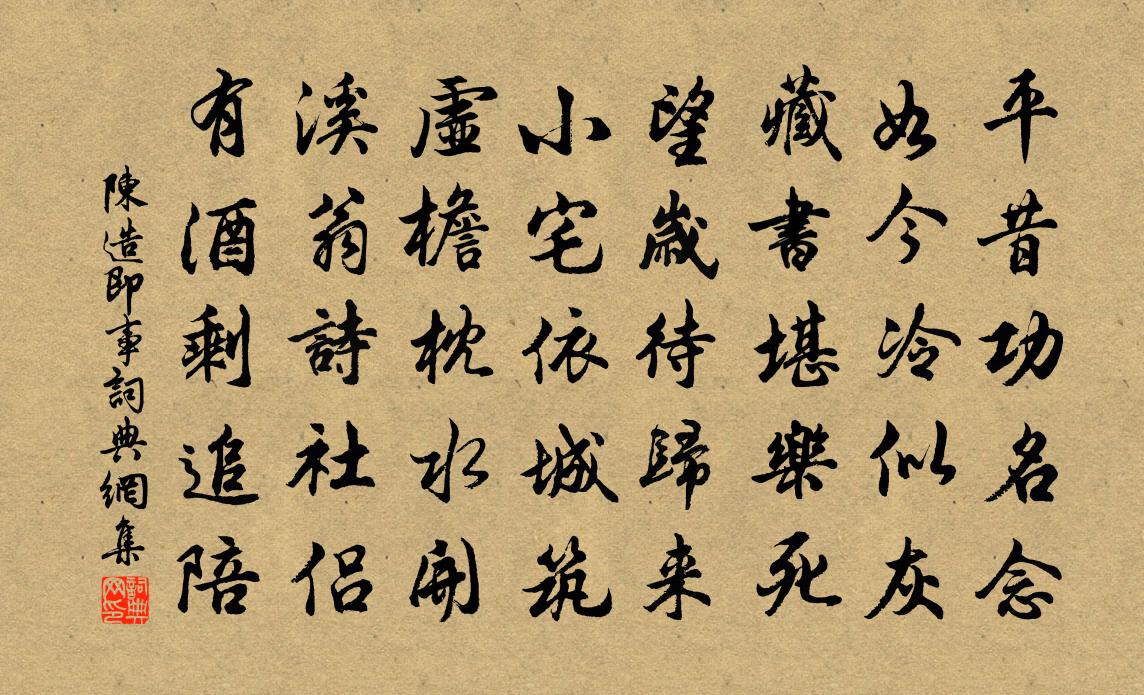 平昔功名念
如今冷似灰
藏書堪樂死
望歲待歸来
小宅依城筑
虛檐枕水開
溪翁詩社侣
有酒剩追陪
陳造即事詞典網集
詞典网印